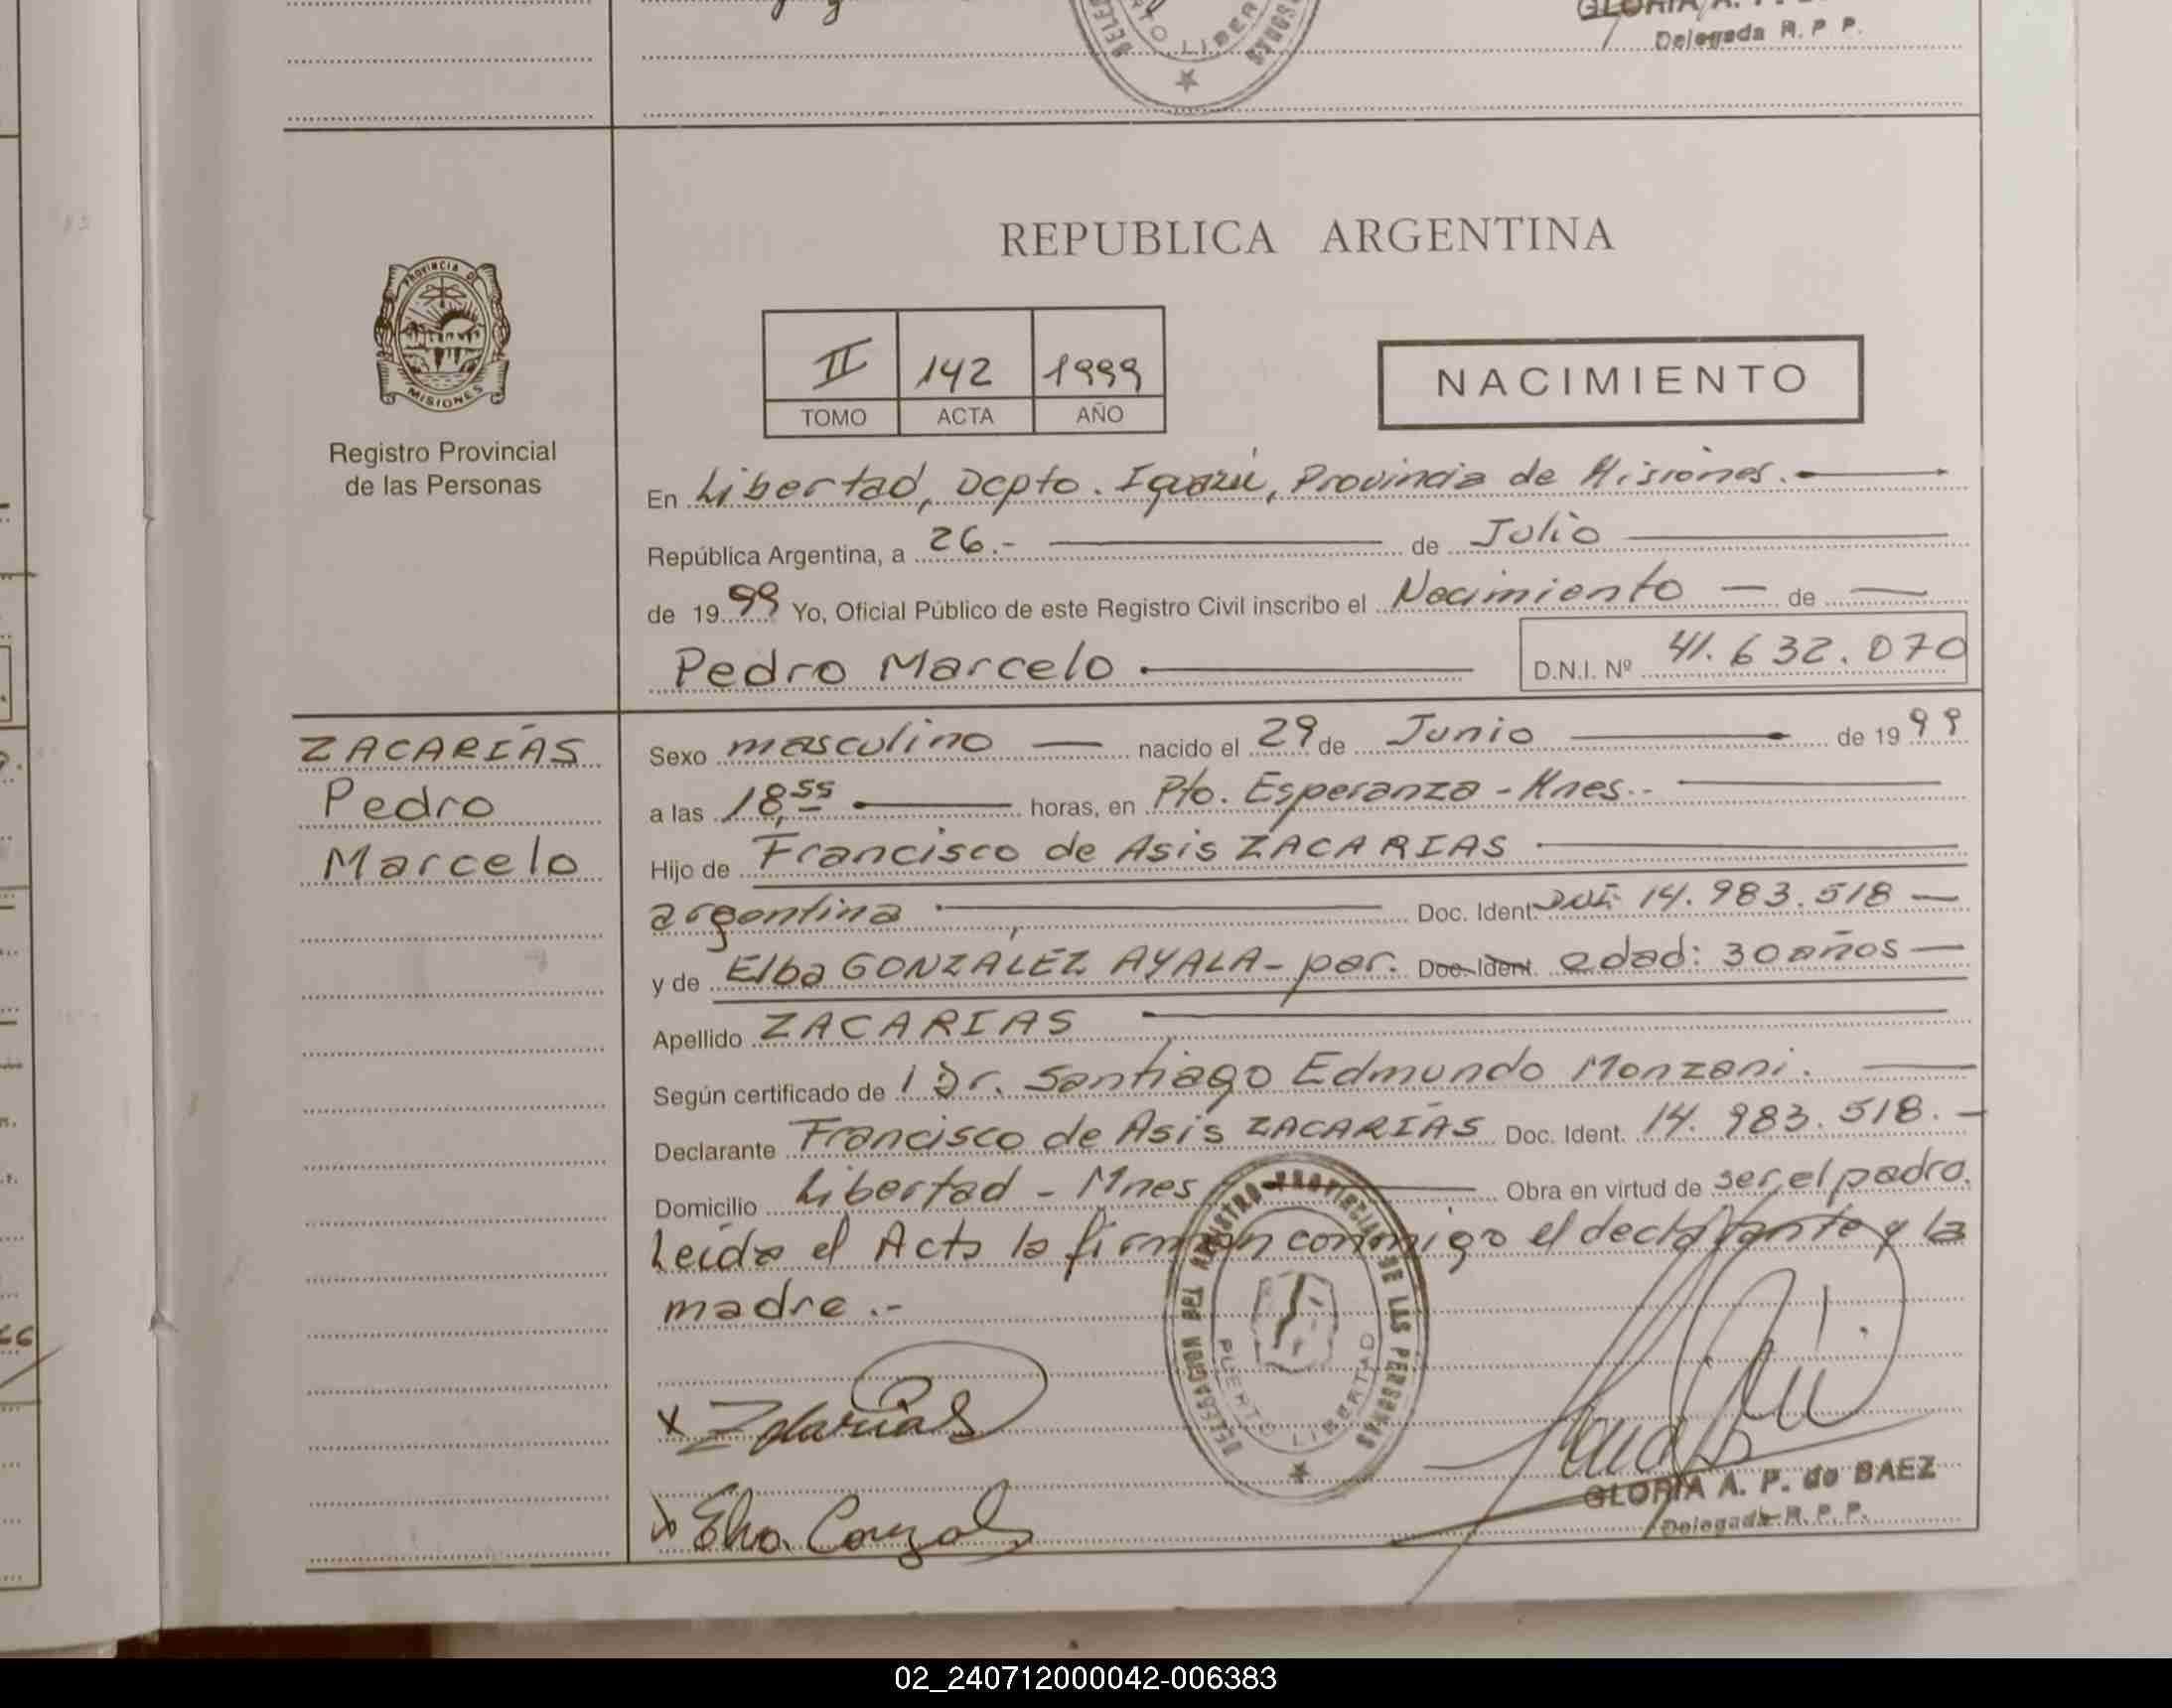 Delegada R. P P.
REPUBLICA ARGENTINA
PROVINCIA DE
MISIONES
Registro Provincial
de las Personas
II 142 1999
TOMO ACTA AÑO
NACIMIENTO
En Libertad, Dcpto. Iguazú, Provincia de Misiones.
República Argentina, a 26.- de Julio
de 19 99 Yo, Oficial Público de este Registro Civil inscribo el Nacimiento de
Pedro Marcelo D.N.I. Nº 41.632.070
ZACARÍAS
Pedro
Marcelo
Sexo masculino nacido el 29 de Junio de 19 99
a las 18,55 horas, en Pto. Esperanza - Mnes.-
Hijo de Francisco de Asis ZACARIAS
argentina Doc. Ident. DNI 14.983.518
y de Elba GONZALEZ AYALA - par. Doc. Ident. edad: 30 años
Apellido ZACARIAS
Según certificado de l Dr. Santiago Edmundo Monzani.
Declarante Francisco de Asis ZACARÍAS Doc. Ident. 14.983.518.
Domicilio Libertad - Mnes Obra en virtud de ser el padre.
Leída el Acta la firman conmigo el declarante y la
madre.-
DELEGACION DEL REGISTRO PROVINCIAL DE LAS PERSONAS
PUERTO LIBERTAD
x Zacarias
x Elba Gonzalez
GLORIA A. P. de BAEZ
Delegada R. P. P.
02_240712000042-006383